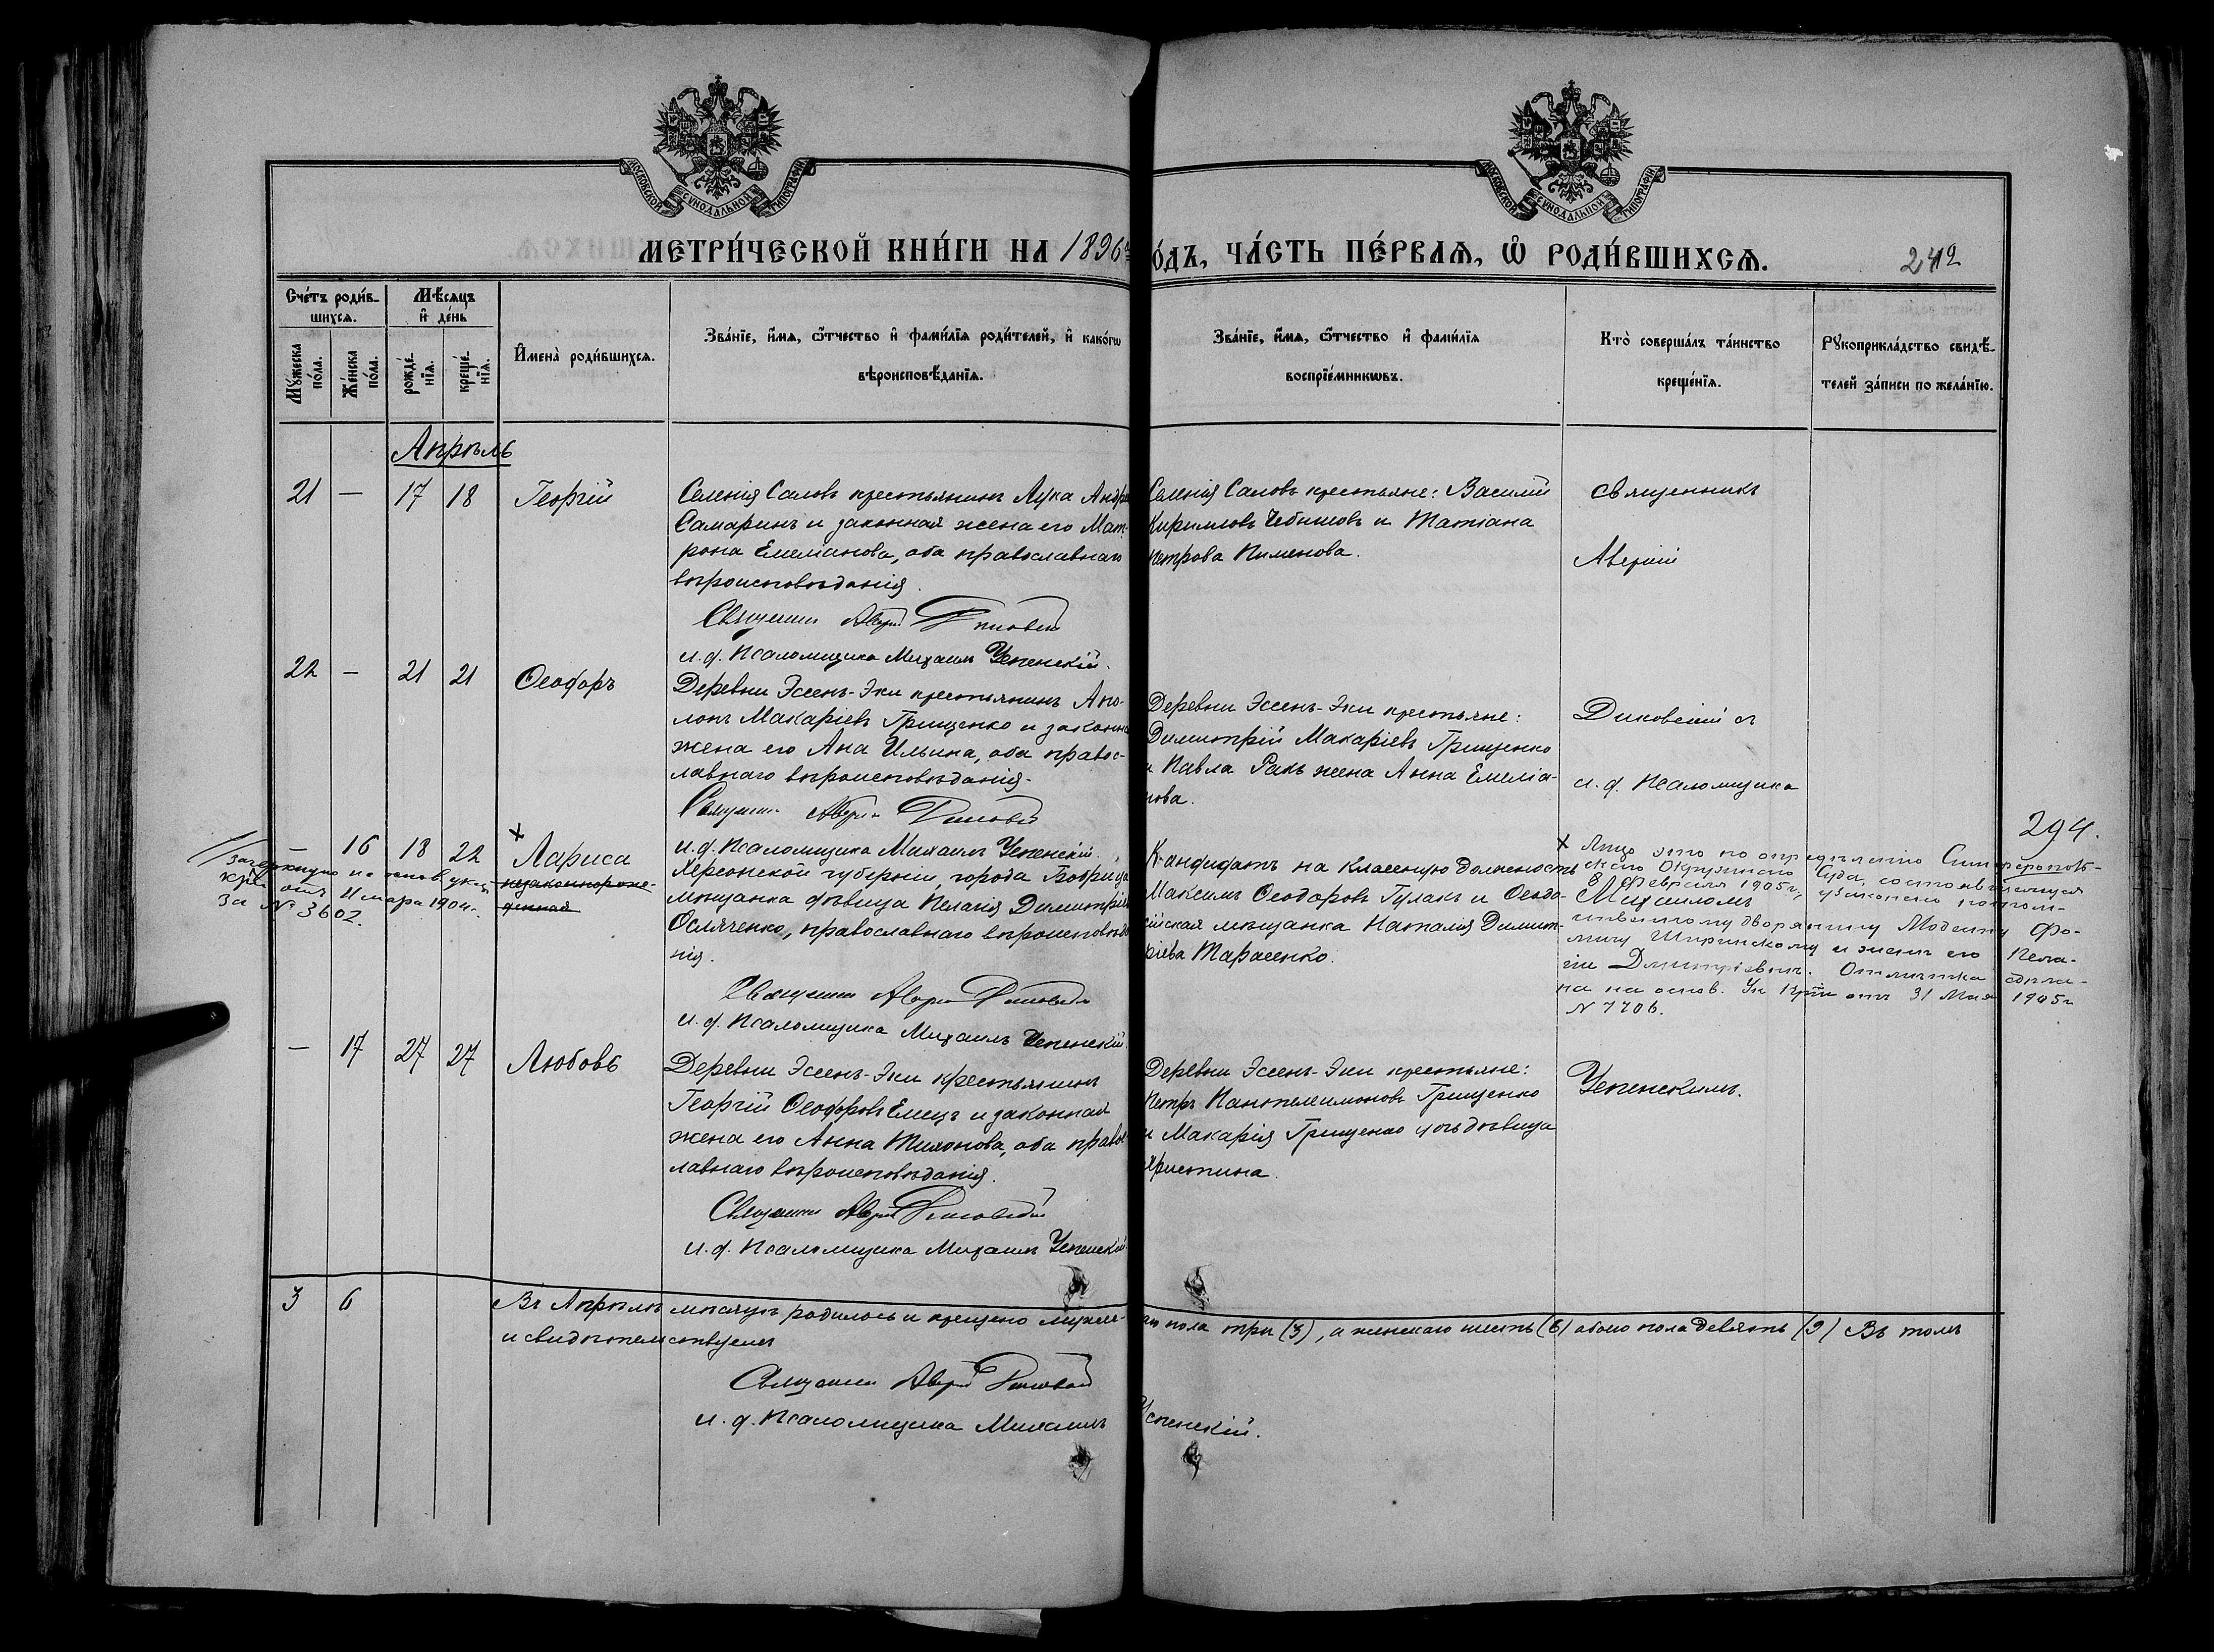 МОСКОВСКОЙ СѴНОДАЛЬНОЙ ТИПОГРАФІИ
МОСКОВСКОЙ СѴНОДАЛЬНОЙ ТИПОГРАФІИ
МЕТРИ́ЧЕСКОЙ КНИ́ГИ НА 1896 го́дъ, ЧА́СТЬ ПЕ́РВАѦ, Ѡ҆ РОДИ́ВШИХСѦ.
242
Сче́тъ роди́в-
шихсѧ.
Мѣ́сѧцъ
и҆ де́нь
Мꙋ́жеска
по́ла.
Же́нска
по́ла.
рожде́-
нїѧ.
креще́-
нїѧ.
И҆мена̀ роди́вшихсѧ.
Зва́нїе, и҆́мѧ, ѻ҆́тчество и҆ фами́лїѧ роди́телей, и҆ како́гѡ
вѣроисповѣ́данїѧ.
Зва́нїе, и҆́мѧ, ѻ҆́тчество и҆ фами́лїѧ
воспрїе́мникѡвъ.
Кто̀ соверша́лъ та́инство
креще́нїѧ.
Рꙋкоприкла́дство свидѣ́-
телей за́писи по жела́нїю.
Апрѣль
21 — 17 18 Георгій
Селенія Салов крестьянинъ Лука Андре
Самаринъ и законная жена его Мат-
рона Емеліанова, оба православнаго
вѣроисповѣданія.
Священникъ
и. д. Псаломщика Михаилъ Успенскій.
Селенія Салов крестьяне: Василій
Кириллов и Татіана
Петрова Пименова.
Священникъ
Аверкій
22 — 21 21 Ѳеодоръ
Деревни Эссенъ-Эки крестьянинъ Апо-
лонъ Макаріевъ Грищенко и законна
жена его Ана Ильина, оба правос-
лавнаго вѣроисповѣданія.
Священникъ
и. д. Псаломщика Михаилъ Успенскій.
Деревни Эссенъ-Эки крестьяне:
Димитрій Макаріевъ Грищенко
и Павла Ракъ жена Анна Емеліа-
нова.
Диковскій съ
и. д. Псаломщика
294.
— 16 18 22 × Лариса
незаконнорож-
денная
Зачеркнуто на основ. указа
отъ 11 мар. 1904 г.
За № 3602.
Херсонской губерніи, города Бобринца
мѣщанка дѣвица Пелагія Димитріев
Ослаченко, православнаго вѣроисповѣда
нія.
Священникъ
и. д. Псаломщика Михаилъ Успенскій.
Кандидатъ на классную должность
Максимъ Ѳеодоровъ Гулакъ и Ѳеодо-
сійская мѣщанка Наталія Димит-
ріева Тарасенко.
× Лицо это по опредѣленію Симферополь-
скаго Окружнаго Суда, состоявшемуся
8 Февраля 1905 г., узаконено потом-
ственному дворянину Модесту Фо-
мичу Ширинскому и женѣ его Пела-
гіи Дмитріевнѣ. Отмѣтка сдѣла-
на на основ. Ук. отъ 31 Мая 1905 г.
№ 7706.
— 17 27 27 Любовь
Деревни Эссенъ-Эки крестьянинъ
Георгій Ѳеодоровъ Емецъ и законная
жена его Анна Тихонова, оба правос
лавнаго вѣроисповѣданія.
Священникъ
и. д. Псаломщика Михаилъ Успенскій
Деревни Эссенъ-Эки крестьяне:
Петръ Пантелеимоновъ Грищенко
и Макарія Грищенко дочь дѣвица
Христина.
Успенскимъ.
3 6
Въ Апрѣлѣ мѣсяцѣ родилось и крещено мужес-
каго пола три (3), а женскаго шесть (6) обоего пола девять (9) Въ томъ
и свидѣтельствуемъ
Священникъ
и. д. Псаломщика Михаилъ Успенскій.